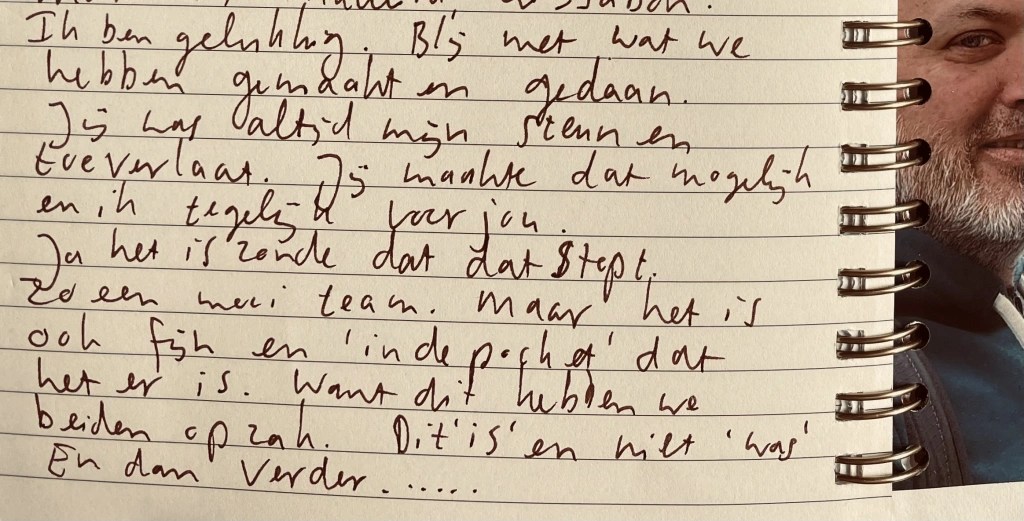 Ik ben gelukkig. Blij met wat we
hebben gemaakt en gedaan.
Jij was altijd mijn steun en
toeverlaat. Jij maakte dat mogelijk
en ik tegelijk voor jou.
Ja het is zonde dat dat stopt.
Zo een mooi team. Maar het is
ook fijn en 'in de pocket' dat
het er is. Want dit hebben we
beiden op zak. Dit 'is' en niet 'was'
En dan verder......